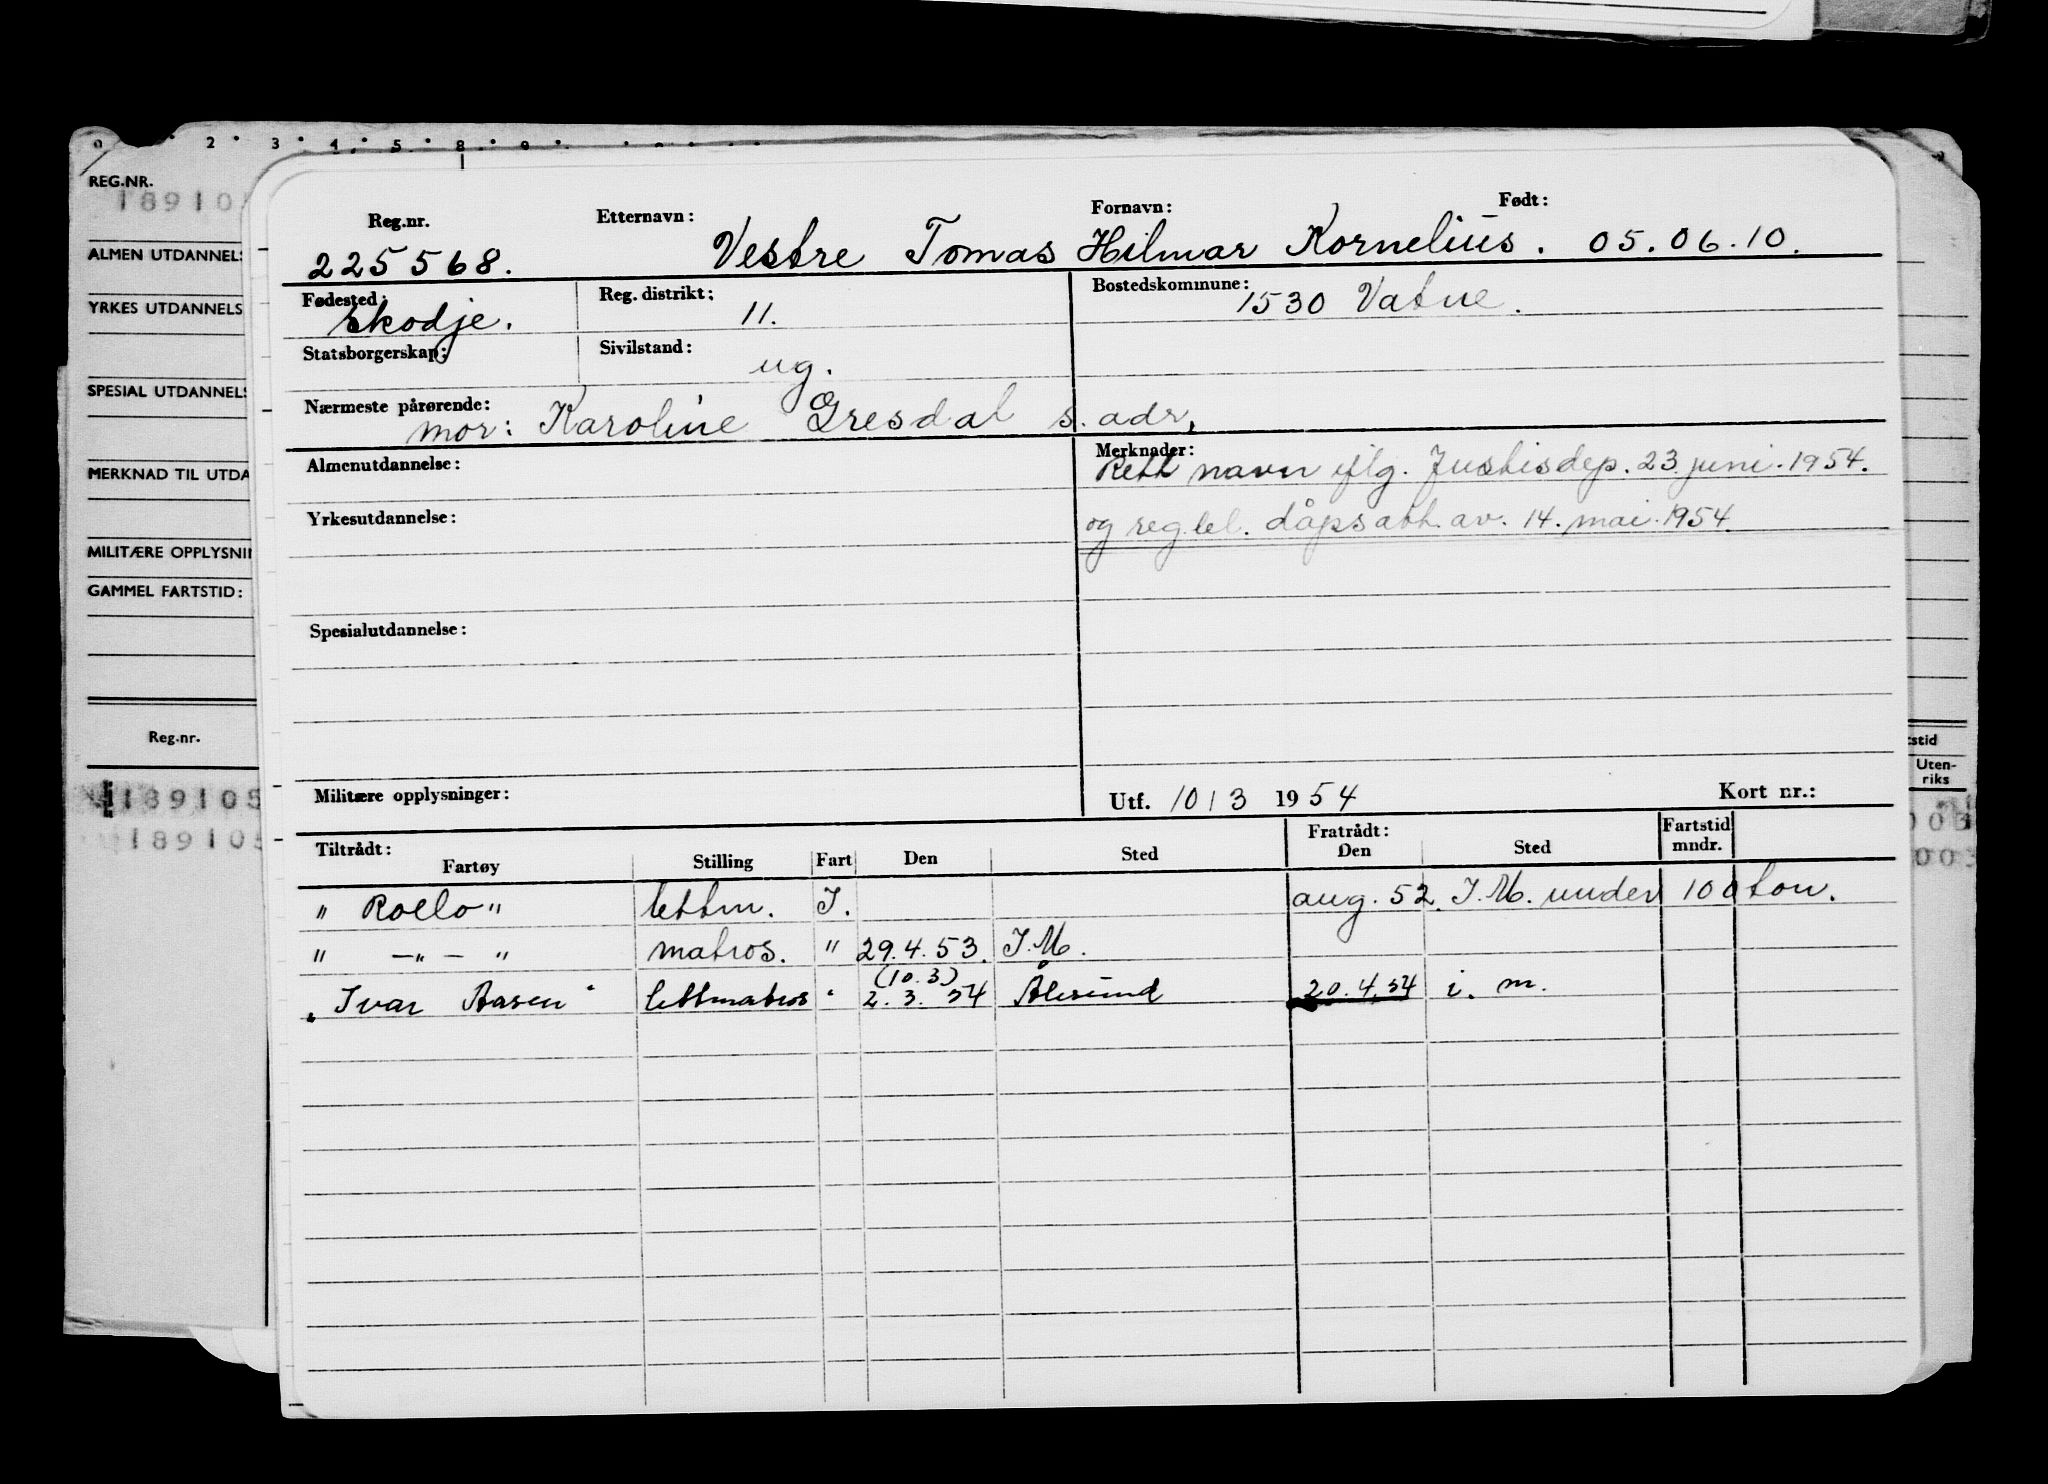 0 2 3 4 5 8 9
REG.NR.
189105
ALMEN UTDANNELS
YRKES UTDANNELS
SPESIAL UTDANNELS
MERKNAD TIL UTDA
MILITÆRE OPPLYSNIN
GAMMEL FARTSTID:
Reg.nr.
189105
189105
Reg.nr. Etternavn: Fornavn: Født:
225568. Vestre Tomas Hilmar Kornelius. 05.06.10.
Fødested: Reg. distrikt: Bostedskommune:
Skodje. 11. 1530 Vatne.
Statsborgerskap: Sivilstand:
ug.
Nærmeste pårørende:
mor: Karoline Gresdal s. adr,
Almenutdannelse: Merknader:
Rett navn iflg. Justisdep. 23. juni. 1954.
Yrkesutdannelse: og reg.tel. dåpsatt. av. 14. mai. 1954.
Spesialutdannelse:
Militære opplysninger: Utf. 10/3 1954 Kort nr.:
Tiltrådt: Fratrådt: Fartstid mndr.
Fartøy Stilling Fart Den Sted Den Sted
" Rollo " lettm. I. aug. 52. I.M. under 100 ton.
" —"— " matros. " 29.4.53. I.M.
(10.3)
"Ivar Aasen" lettmatros " 2. 3. 54 Ålesund 20.4.54 i. m.
tstid
Uten-
riks
003
003